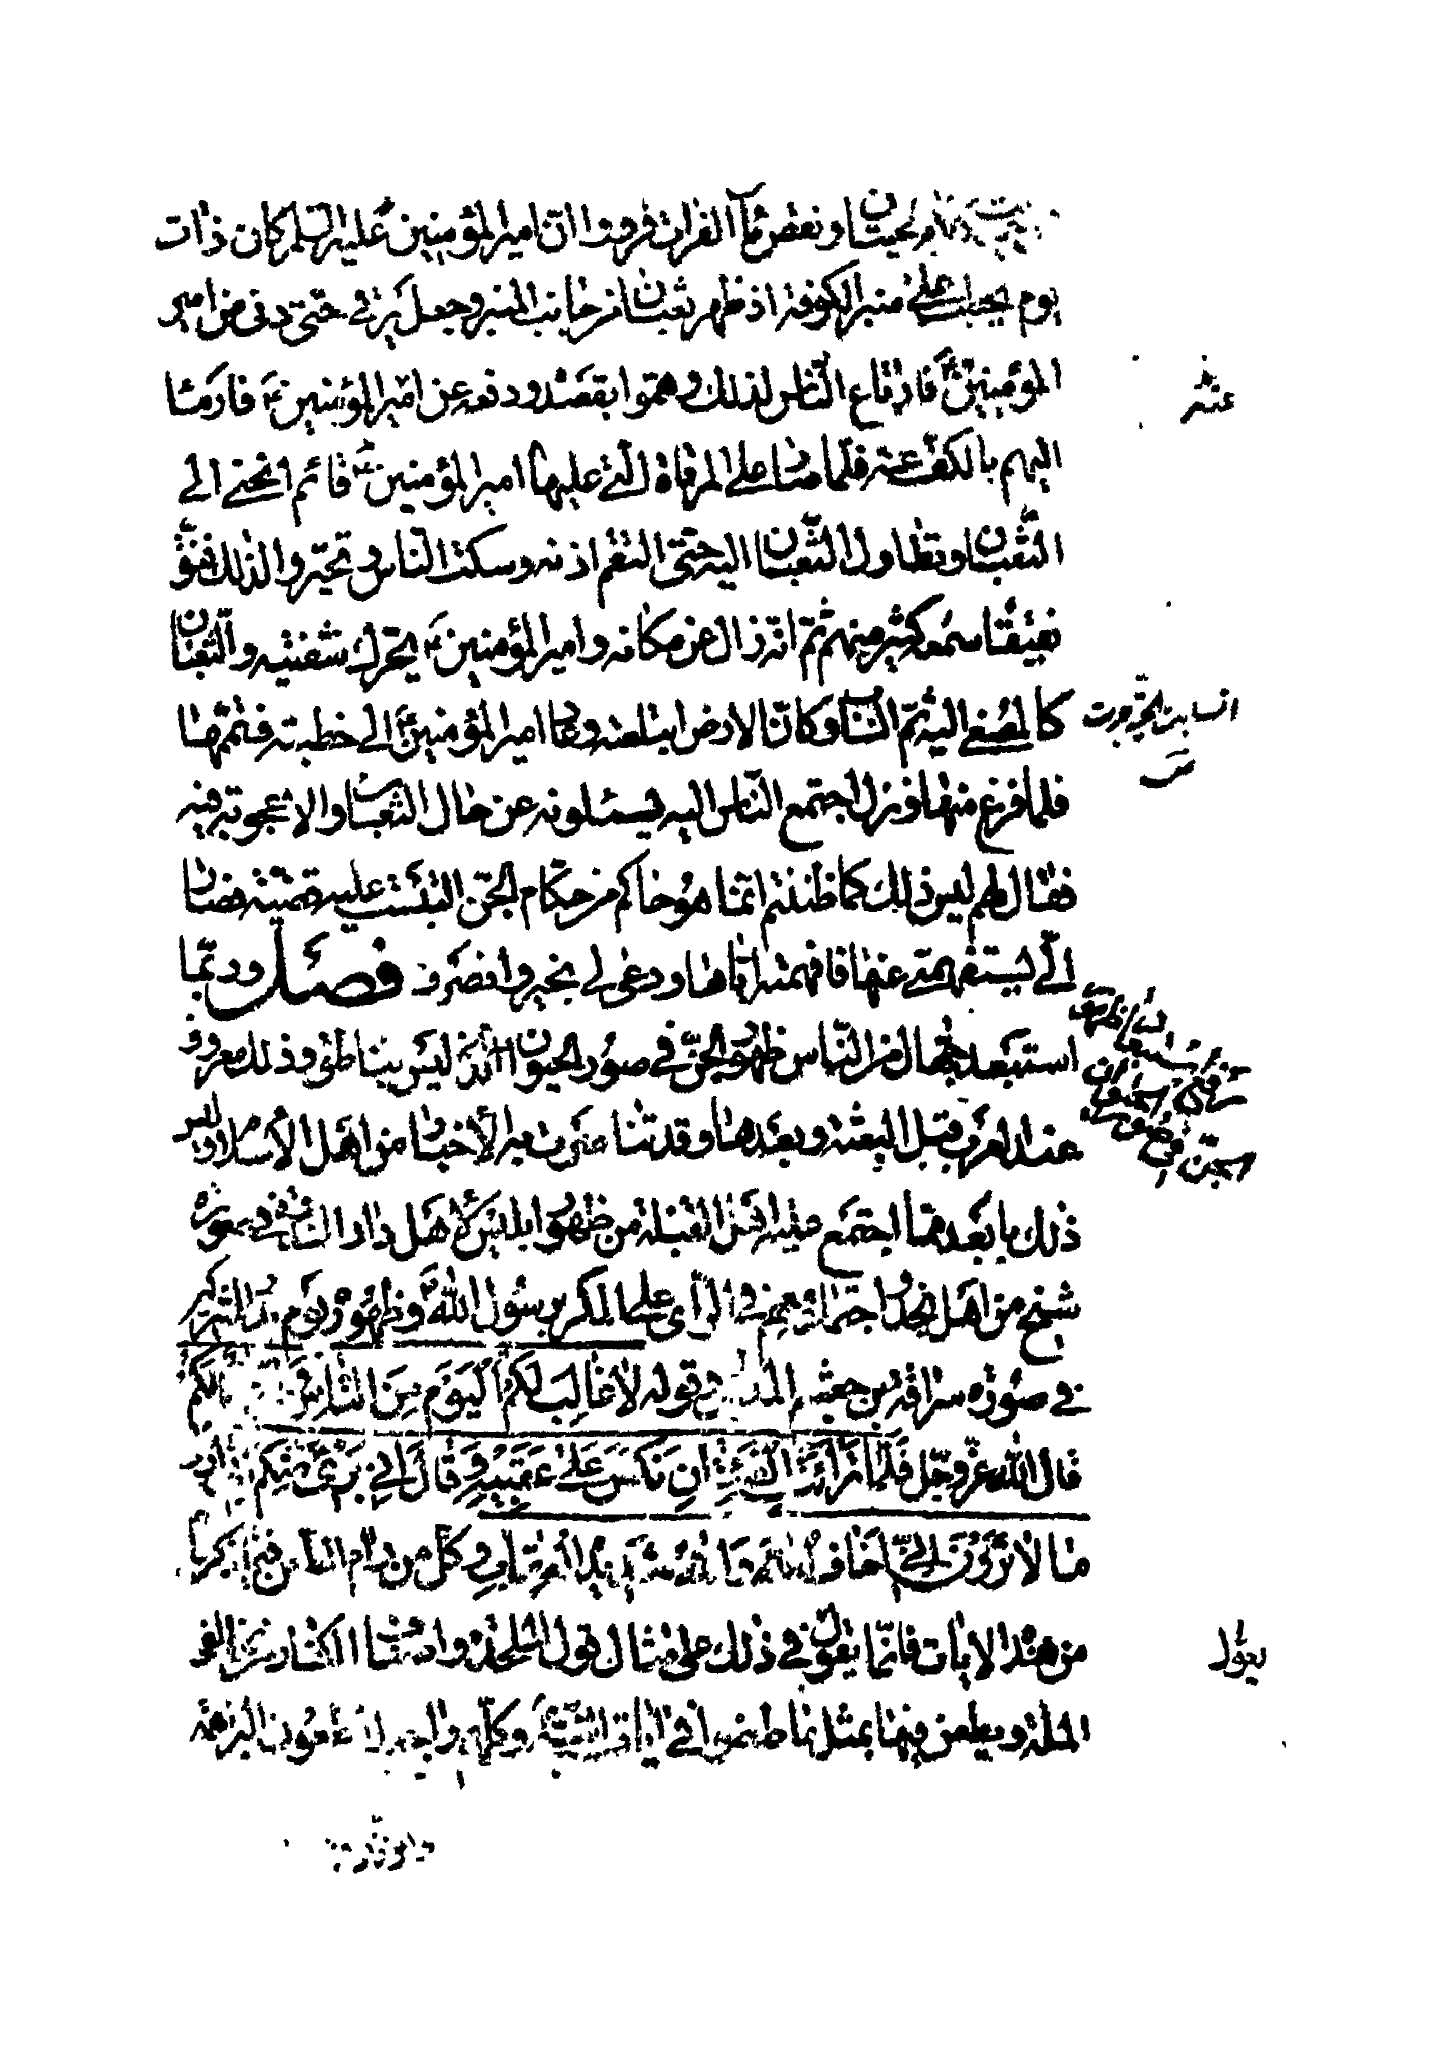 وبعض القران فرووا ان امير المؤمنين عليه السلم كان ذات
يوم يخطب على منبر الكوفة اذ ظهر ثعبان من جانب المنبر وجعل يرقى حتى دنى من امير
المؤمنين ع فارتاع الناس لذلك وهموا بقصده ودفعه عن امير المؤمنين ع فاومئا
اليهم بالكف عنه فلما صار على المرقاة التي عليها امير المؤمنين ع قائم انحنى الى
الثعبان وتطاول الثعبان اليه حتى التقم اذنه وسكت الناس وتحيروا لذلك فنق
نقيقا سمعه كثير منهم ثم انه زال عن مكانه وامير المؤمنين ع يحرك شفتيه والثعبان
كالمصغى اليه ثم انساب وكان الارض ابتلعته وعاد امير المؤمنين ع الى خطبته فتممها
فلما فرغ منها ونزل اجتمع الناس اليه يسئلونه عن حال الثعبان والاعجوبة فيه
فقال لهم ليس ذلك كما ظننتم انما هو حاكم من حكام الجن التبست عليه قضية فصار
الى يستفهمني عنها فافهمته اياها ودعى لي بخير وانصرف فصل وربما
استبعد جهال من الناس ظهور الجن في صور الحيوان الذي ليس بناطق وذلك معروف
عند العرب قبل البعثة وبعدها وقد تناصرت به الاخبار من اهل الاسلام وليس
ذلك بابعد مما اجتمع عليه اهل القبلة من ظهور ابليس لاهل دار الندوة في صورة
شيخ من اهل نجد واجتماعه معهم في الراى على المكر برسول الله ص وظهوره يوم بدر للمشركين
في صورة سراقة بن جعشم المدلجي وقوله لا غالب لكم اليوم من الناس لكم
قال الله عز وجل فلما تراءت الفئتان نكص على عقبيه وقال اني برئ منكم اني ارى
ما لا ترون اني اخاف الله والله شديد العقاب وكل من رام الطعن فيما ذكرناه
من هذه الايات فانما يقول في ذلك على مثال قول الملحدة واصناف الكفار من مخالفى
الملة ويطعن فيها بمثل ما طعنوا في ايات النبي ص وكلهم راجعون الى طعون البراهمة
عنه
يعول